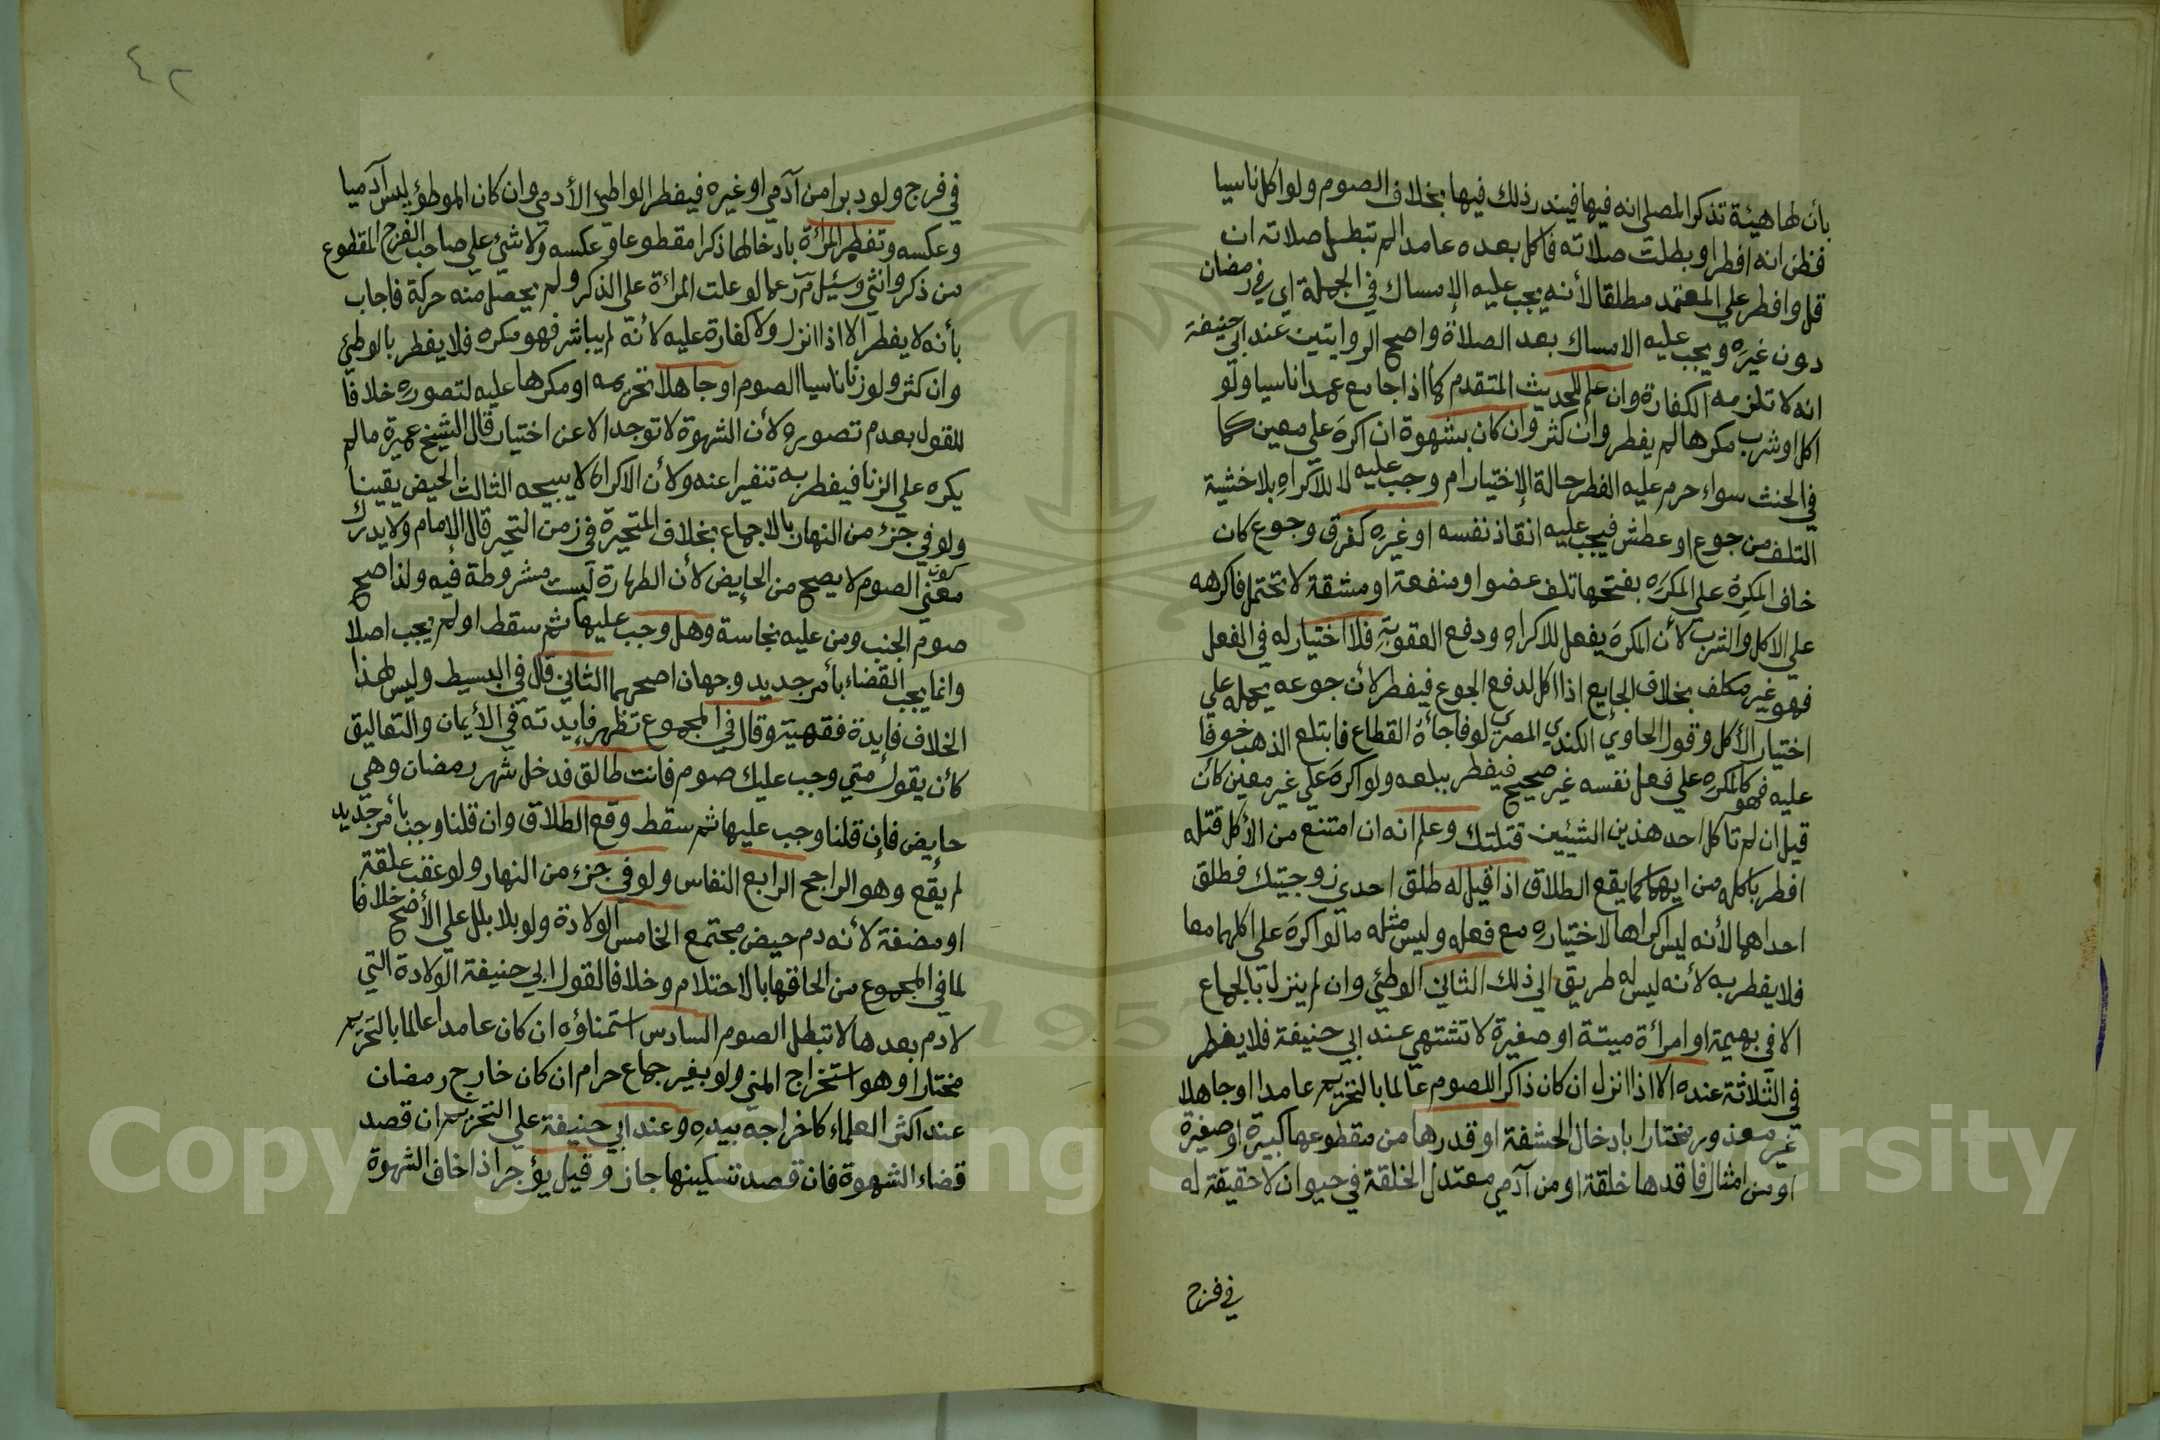 بأن لها هيئة تذكر المصلي انه فيها فيندر ذلك فيها بخلاف الصوم ولو اكل ناسيا
فظن انه افطر او بطلت صلاته فاكل بعده عامدا لم تبطل صلاته ان
قل وافطر علي المعتمد مطلقا لأنه يجب عليه الإمساك في الجملة اي في رمضان
دون غيره ويجب عليه الامساك بعد الصلاة واصح الروايتين عند ابي حنيفة
انه لا تلزمه الكفارة وان علم للحديث المتقدم كما اذا جامع عمدا ناسيا ولو
اكل او شرب مكرها لم يفطر وان كثر وان كان بشهوة ان اكره علي معين كما
في الحنث سواء حرم عليه الفطر حالة الإختيار ام وجب عليه لا للاكراه بلا خشية
التلف من جوع او عطش فيجب عليه انقاذ نفسه او غيره كغرق وجوع كان
خاف المكره علي المكره بفتحها تلف عضو او منفعة او مشقة لا تحتمل فاكرهه
علي الاكل والشرب لأن المكره يفعل للاكراه ودفع العقوبة فلا اختيار له في الفعل
فهو غير مكلف بخلاف الجايع اذا اكل لدفع الجوع فيفطر لأن جوعه يحمله علي
اختيار الأكل وقول الحاوي الكندي المصري لو فاجأه القطاع فابتلع الذهب خوفا
عليه فهو كالمكره علي فعل نفسه غير صحيح فيفطر ببلعه ولو اكره علي غير معين كأن
قيل ان لم تاكل احد هذين الشيئين قتلتك وعلم انه ان امتنع من الأكل قتله
افطر باكله من ايهما كما يقع الطلاق اذا قيل له طلق احدي زوجتيك فطلق
احداهما لأنه ليس اكراها لاختياره مع فعله وليس مثله ما لو اكره علي اكلهما معا
فلا يفطر به لأنه ليس له طريق الي ذلك الثاني الوطئ وان لم ينزل بالجماع
الا في بهيمة او امرأة ميتة او صغيرة لا تشتهي عند ابي حنيفة فلا يفطر
في الثلاثة عنده الا اذا انزل ان كان ذاكرا للصوم عالما بالتحريم عامدا او جاهلا
غير معذور مختارا بادخال الحشفة او قدرها من مقطوعها كبيرة او صغيرة
او من امثال فاقدها خلقة او من آدمي معتدل الخلقة في حيوان لا حقيقة له
في فرج
٤٢
في فرج ولو دبرا من آدمي او غيره فيفطر الواطئ الأدمي وان كان الموطؤ ليس آدميا
وعكسه وتفطر المرأة بادخالها ذكرا مقطوعا وعكسه ولا شئ علي صاحب الفرج المقطوع
من ذكر وانثي وسئل م ر عما لو علت المرأة علي الذكر ولم يحصل منه حركة فاجاب
بأنه لا يفطر الا اذا انزل ولا كفارة عليه لأنه لم يباشر فهو مكره فلا يفطر بالوطئ
وان كثر ولو زنا ناسيا الصوم او جاهلا تحريمه او مكرها عليه لتصوره خلافا
للقول بعدم تصوره لأن الشهوة لا توجد الا عن اختيار قال الشيخ عميرة ما لم
يكره علي الزنا فيفطر به تنفيرا عنه ولأن الاكراه لا يبيحه الثالث الحيض يقينا
ولو في جزء من النهار بالاجماع بخلاف المتحيرة في زمن التحير قال الإمام ولا يدرك
معني كون الصوم لا يصح من الحايض لأن الطهارة ليست مشروطة فيه ولذا صح
صوم الجنب ومن عليه نجاسة وهل وجب عليها ثم سقط او لم يجب اصلا
وانما يجب القضاء بأمر جديد وجهان اصحهما الثاني قال في البسيط وليس لهذا
الخلاف فايدة فقهية وقال في المجموع تظهر فايدته في الأيمان والتعاليق
كأن يقول متي وجب عليك صوم فانت طالق فدخل شهر رمضان وهي
حايض فإن قلنا وجب عليها ثم سقط وقع الطلاق وان قلنا وجب بأمر جديد
لم يقع وهو الراجح الرابع النفاس ولو في جزء من النهار ولو عقب علقة
او مضغة لأنه دم حيض مجتمع الخامس الولادة ولو بلا بلل علي الأصح خلافا
لما في المجموع من الحاقها بالاحتلام وخلافا لقول ابي حنيفة الولادة التي
لا دم بعدها لا تبطل الصوم السادس استمناؤه ان كان عامدا عالما بالتحريم
مختارا وهو استخراج المني ولو بغير جماع حرام ان كان خارج رمضان
عند اكثر العلماء كاخراجه بيده وعند ابي حنيفة علي التحريم ان قصد
قضاء الشهوة فان قصد تسكينها جاز وقيل يؤجر اذا خاف الشهوة
Copyright © King Saud University
1957